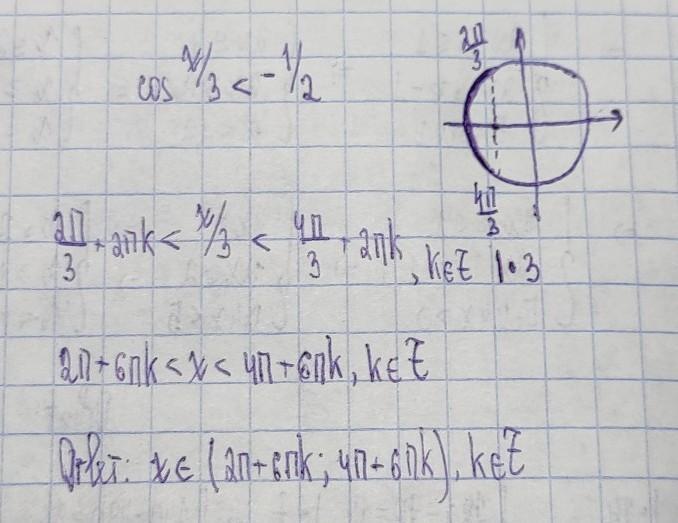 cos x/3 < -1/2
2π/3
4π/3
2π/3 + 2πk < x/3 < 4π/3 + 2πk, k∈Z |·3
2π+6πk < x < 4π+6πk, k∈Z
Ответ: x∈(2π+6πk; 4π+6πk), k∈Z